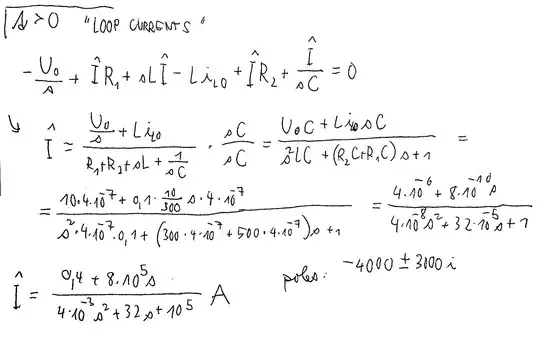 s > 0 "LOOP CURRENTS"
-U₀/s + Î R₁ + sL Î - L i_L0 + Î R₂ + Î/(sC) = 0
↳ Î = (U₀/s + L i_L0)/(R₁ + R₂ + sL + 1/(sC)) · sC/sC = (U₀C + L i_L0 sC)/(s²LC + (R₂C + R₁C) s + 1) =
= (10·4·10⁻⁷ + 0,1·10/300 s·4·10⁻⁷)/(s²·4·10⁻⁷·0,1 + (300·4·10⁻⁷ + 500·4·10⁻⁷) s + 1) = (4·10⁻⁶ + 8·10⁻¹⁰ s)/(4·10⁻⁸ s² + 32·10⁻⁵ s + 1)
Î = (0,4 + 8·10⁵ s)/(4·10⁻³ s² + 32 s + 10⁵) A poles: -4000 ± 3000 i